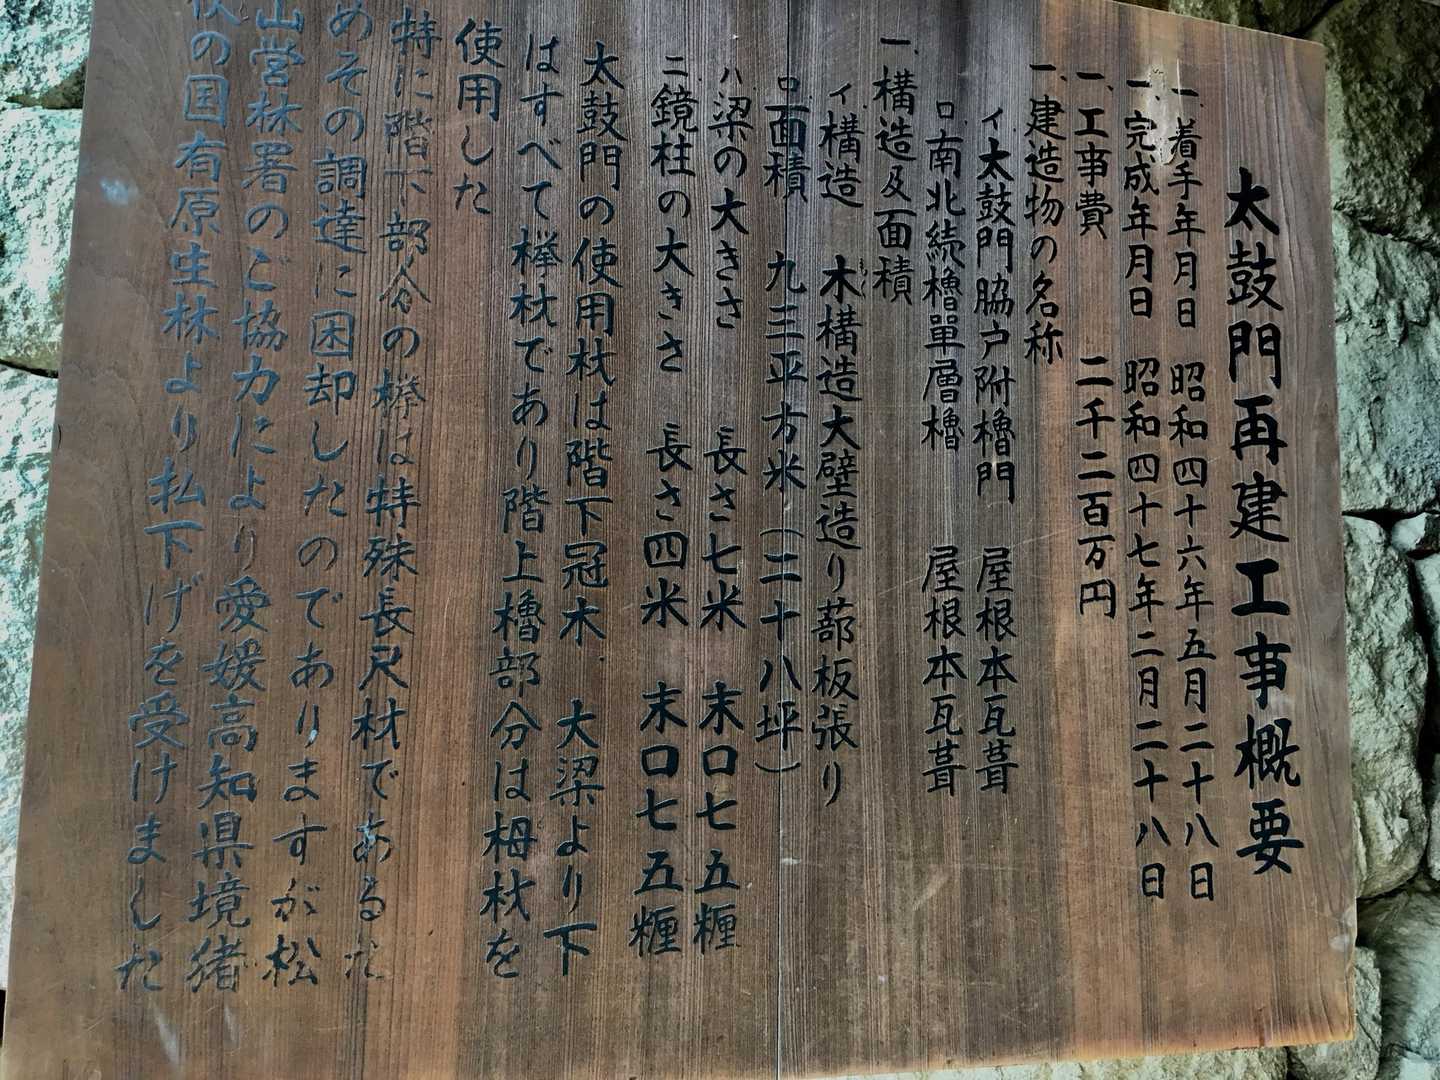 太鼓門再建工事概要
一、着手年月日　昭和四十六年五月二十八日
一、完成年月日　昭和四十七年二月二十八日
一、工事費　二千二百万円
一、建造物の名称
イ、太鼓門脇戸附櫓門　屋根本瓦葺
ロ、南北続櫓單層櫓　屋根本瓦葺
一、構造及面積
イ、構造　木構造大壁造り蔀板張り
ロ、面積　九三平方米（二十八坪）
ハ、梁の大きさ　長さ七米　末口七五糎
ニ、鏡柱の大きさ　長さ四米　末口七五糎
太鼓門の使用材は階下冠木、大梁より下
はすべて欅材であり階上櫓部分は栂材を
使用した
特に階下部分の欅は特殊長尺材であるた
めその調達に困却したのでありますが松
山営林署のご協力により愛媛高知県境猪
伏の国有原生林より払下げを受けました